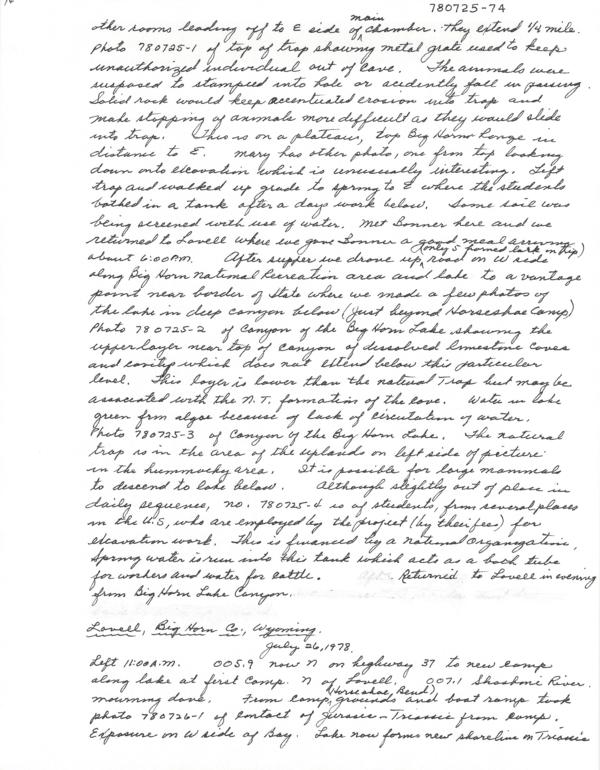 780725-74
other rooms leading off to E side of main chamber. They extend 1/4 mile.
Photo 780725-1 of top of trap showing metal grate used to keep
unauthorized individual out of cave. The animals were
supposed to stamped into hole or acidently fall in passing.
Solid rock would keep accentuated erosion into trap and
make stopping of animals more difficult as they would slide
into trap. This is on a plateau, top Big Horn Range in
distance to E. Mary has other photo, one from top looking
down onto excavation which is unusually interesting. Left
trap and walked up grade to spring to E where the students
bathed in a tank after a days work below. Some soil was
being screened with use of water. Met Bonner here and we
returned to Lovell where we gave Bonner a good meal arriving
about 6:00 P.M. (only 5 formed lark on trip) After supper we drove up road on W side
along Big Horn National Recreation area and lake to a vantage
point near border of State where we made a few photos of
the lake in deep canyon below (just beyond Horseshoe Camp)
Photo 780725-2 of Canyon of the Big Horn Lake showing the
upper layer near top of canyon of dissolved limestone caves
and cavity which does not extend below this particular
level. This layer is lower than the natural Trap but may be
associated with the N.T. formation of the cave. Water in lake
green frm algae because of lack of circulation of water.
Photo 780725-3 of Canyon of the Big Horn Lake. The natural
trap is in the area of the uplands on left side of picture
in the hummocky area. It is possible for large mammals
to descend to lake below. Although slightly out of place in
daily sequence, no. 780725-4 is of students, from several places
in the U.S, who are employed by the project (by their fees) for
excavation work. This is financed by a National Organization,
Spring water is run into this tank which acts as a bath tube
for workers and water for cattle. Returnid to Lovell in evening
from Big Horn Lake Canyon.
Lovell, Big Horn Co., Wyoming.
July 26, 1978.
Left 11:00 A.M. 005.9 now N on highway 37 to new camp
along lake at first Camp. N of Lovell. 007.1 Shoshoni River.
mourning dove. From camp (Horseshoe Bend) grounds and boat ramp took
photo 780726-1 of contact of Jurasic-Triassic from camp.
Exposure on W side of Bay. Lake now forms new shoreline on Triassic